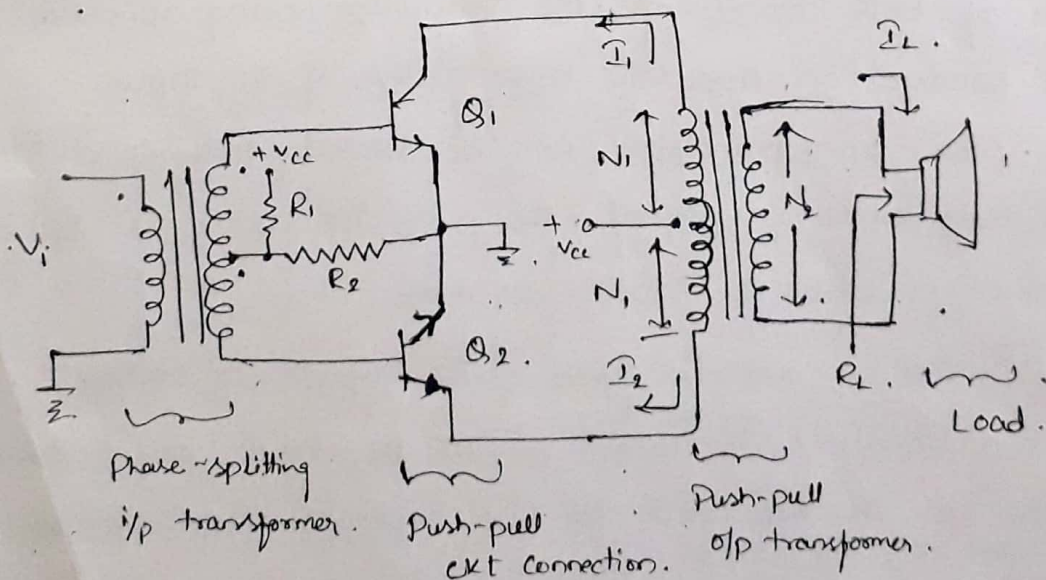 I₁
I_L.
Q₁
+Vcc
R₁
N₁
+
Vcc
N₂
.Vi
R₂
N₁
Q₂.
I₂
R_L.
Load.
Phase-splitting
i/p transformer.
Push-pull
ckt connection.
Push-pull
o/p transformer.